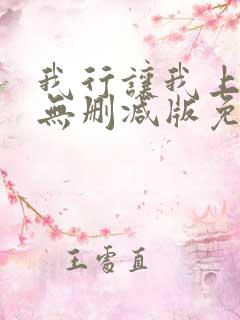 我行讓我上
無刪減版免
王雩直